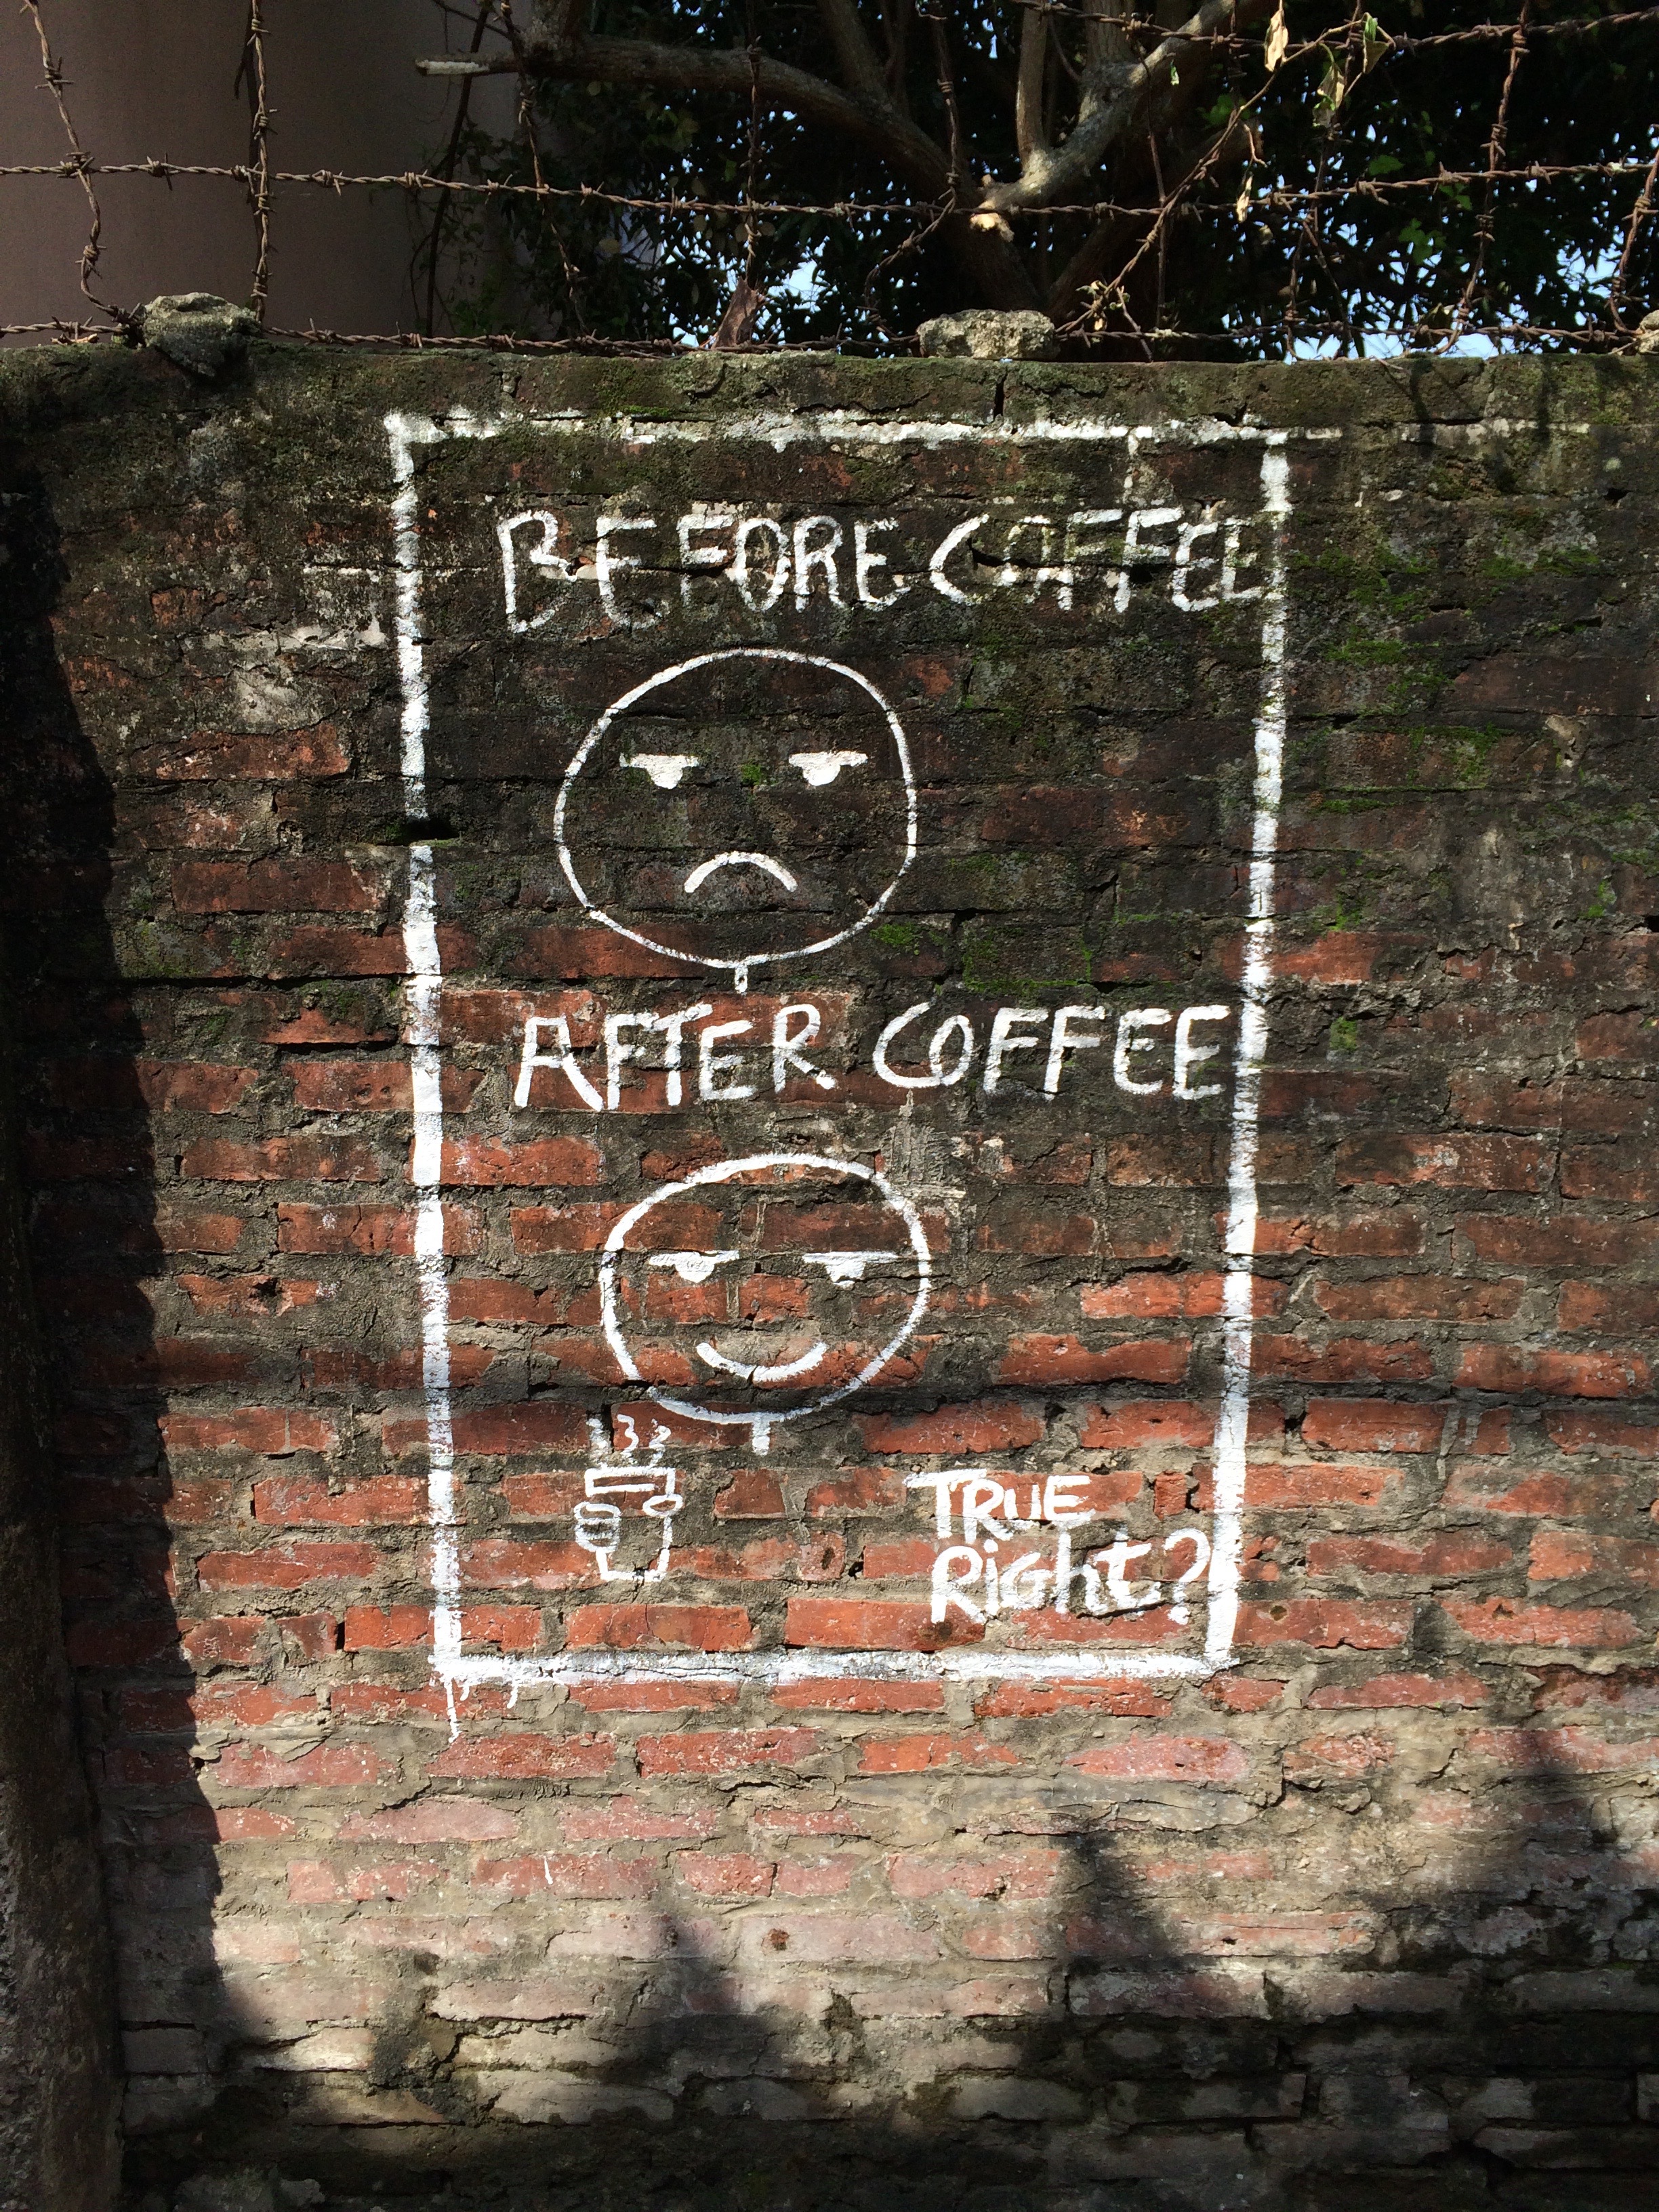 BEFORE COFFEE
AFTER COFFEE
TRUE
Right?